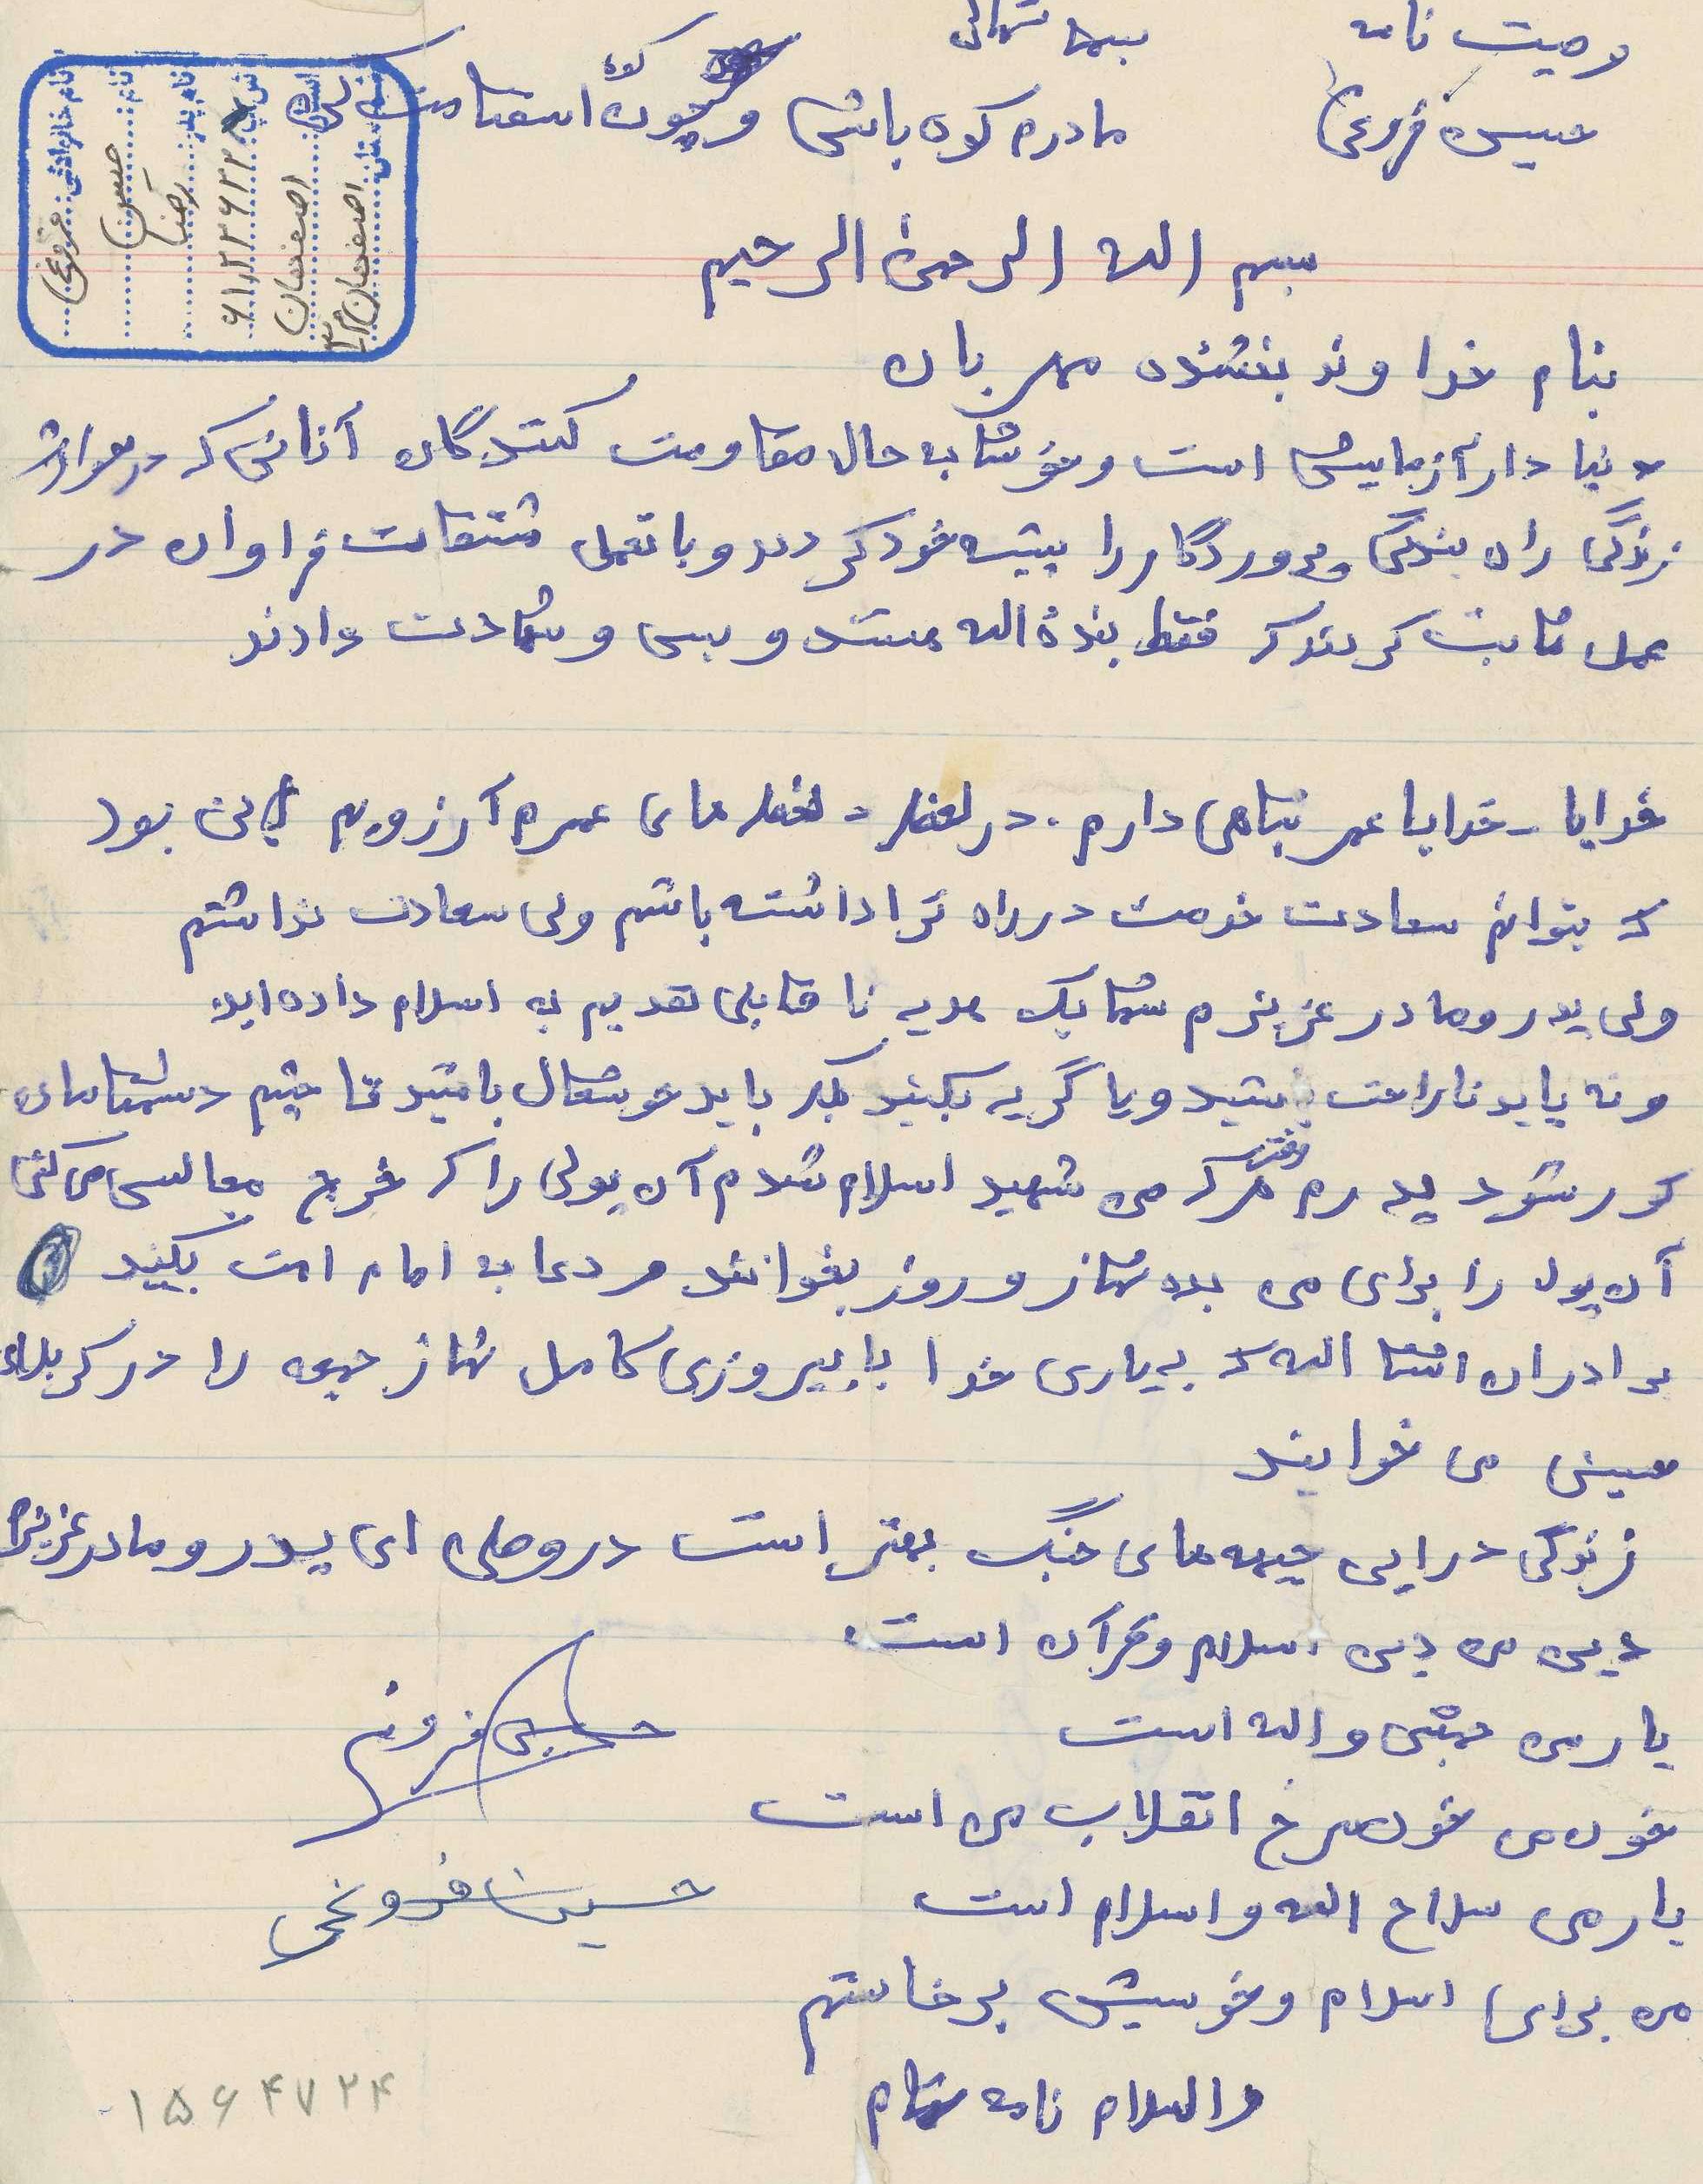 وصیت نامه
بسمه تعالی
حسین فروغی
مادرم کوه باش و چون کوه استقامت کن
نام خانوادگی: فروغی
نام: حسین
نام پدر: رضا
اصفهان
اصفهان
بسم الله الرحمن الرحیم
بنام خداوند بخشنده مهربان
دنیا دار آزمایش است و خوشا به حال مقاومت کنندگان آنانی که در
زندگی راه بندگی پروردگار را پیشه خود کردند و با تحمل مشقات فراوان در
عمل ثابت کردند که فقط بنده الله هستند و بس و شهادت دادند
خدایا - خدایا عمر تباهی دارم. در لحظه - لحظه های عمرم آرزویم این بود
که بتوانم سعادت خدمت در راه ترا داشته باشم ولی سعادت نداشتم
ولی پدر و مادر عزیزم شما یک هدیه نا قابلی تقدیم به اسلام داده اید
و نه باید ناراحت باشید و یا گریه بکنید بلکه باید خوشحال باشید تا چشم دشمنان
کور شود پدرم وقتی که من شهید اسلام شدم آن پولی را که خرج مجالس می کنی
آن پول را برای من بده نماز و روزه بخوانند و دعا به امام امت بکنید
برادران انشا الله که به یاری خدا با پیروزی کامل نماز جمعه را در کربلاء
حسینی می خوانید
زندگی در این جبهه های جنگ بهتر است در وطن ای پدر و مادر عزیزم
دین من دین اسلام و قرآن است.
یار من و الله است
خون من خون سرخ انقلاب من است
یار من سلاح الله و اسلام است
من برای اسلام و خویش برخاستم
والسلام نامه تمام
حسین فروغی
حسین فروغی
۱۵۶۴۷۲۴